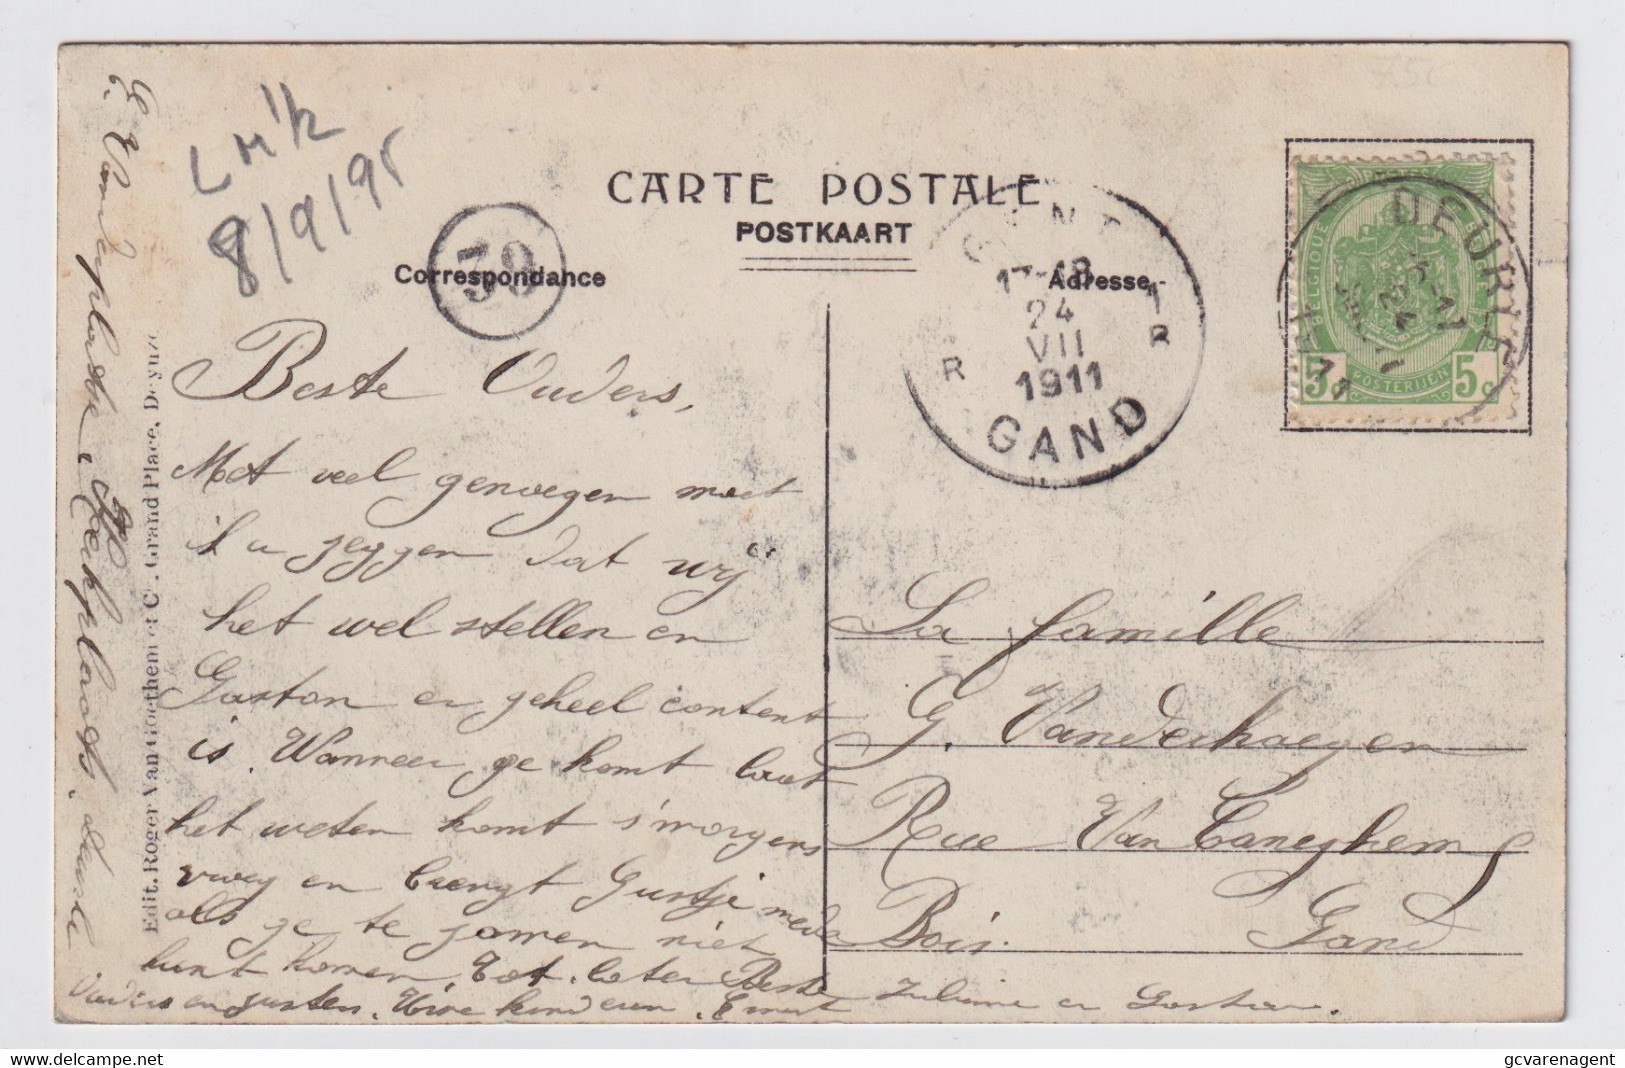 CARTE POSTALE
POSTKAART
Correspondance
Adresse
39
GENT
17-18
24
VII
1911
1
R
R
GAND
DEURLE
BELGIQUE
POSTERIJEN
5c 5c
8/9/95
Beste Ouders,
Met veel genoegen moet
ik u zeggen dat wij
het wel stellen en
Gaston er geheel content
is. Wanneer ge komt laat
het weten komt s'morgens
vroeg en brengt Gustje mede
als ge te zamen niet
kunt komen. Tot later Beste
Ouders en zusters. Uwe kinderen. Ernest Julienne en Gaston.
La famille
G. Vanderhaegen
Rue Van Caneghem
Bois. Gand
Edit. Roger Van Goethem et Cie, Grand Place, Deynze
E. Van de plaste
deurle
gcvarenagent